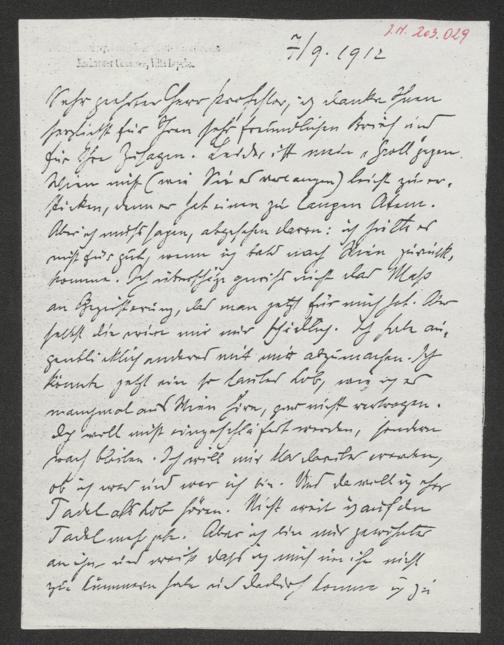 I.N. 203.029
7/9. 1912
Sehr geehrter Herr, ich danke Ihnen
herzlichst für Ihren sehr freundlichen Brief und
für Ihre Zusagen. Leider ist mein Groll gegen
Wien nicht (wie Sie es verlangen) leicht zu er-
sticken, denn er hat einen zu langen Atem.
Aber ich muss sagen, abgesehen davon: ich hielte es
nicht für gut, wenn ich bald nach Wien zurück-
komme. Ich überschätze gewiss nicht das Mass
an Begeisterung, das man jetzt für mich hat. Aber
selbst die wäre mir nur schädlich. Ich habe au-
genblicklich anderes mit mir abzumachen. Ich
könnte jetzt ein so lautes Lob, wie ich es
manchmal aus Wien höre, gar nicht vertragen.
Ich will nicht eingeschläfert werden, sondern
wach bleiben. Ich will mir klar darüber werden,
ob ich wer und wer ich bin. Und da will ich eher
Tadel als Lob hören. Nicht weil ich auf den
Tadel mehr gebe. Aber ich bin mehr gewöhnt
an ihn und weiss dass ich mich um ihn nicht
zu kümmern habe und dadurch komme ich zu